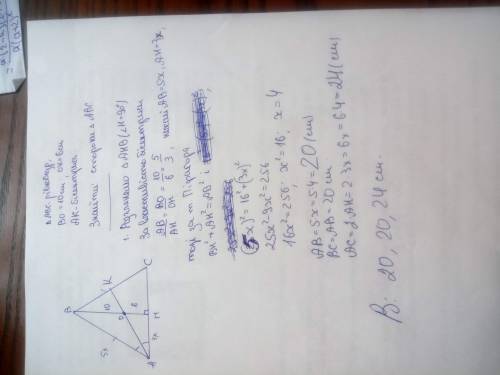 △ABC рівнобедр.
BO=10см OH=6см
AK-бісектриса
Знайти сторони △ABC
1. Розглянемо △AHB (∠H=90°)
За властивістю бісектриси
AB/AH = BO/OH = 10/6 = 5/3, нехай AB=5x, AH=3x,
тоді за т. Піфагора
BH²+AH²=AB² і
(5x)²=16²+(3x)²
25x²-9x²=256
16x²=256 x²=16; x=4
AB=5x=5·4=20(см)
BC=AB=20 см
AC=2·AH=2·3x=6x=6·4=24(см)
В: 20, 20, 24 см.
B
5x
10
K
O
6
A
3x
H
C